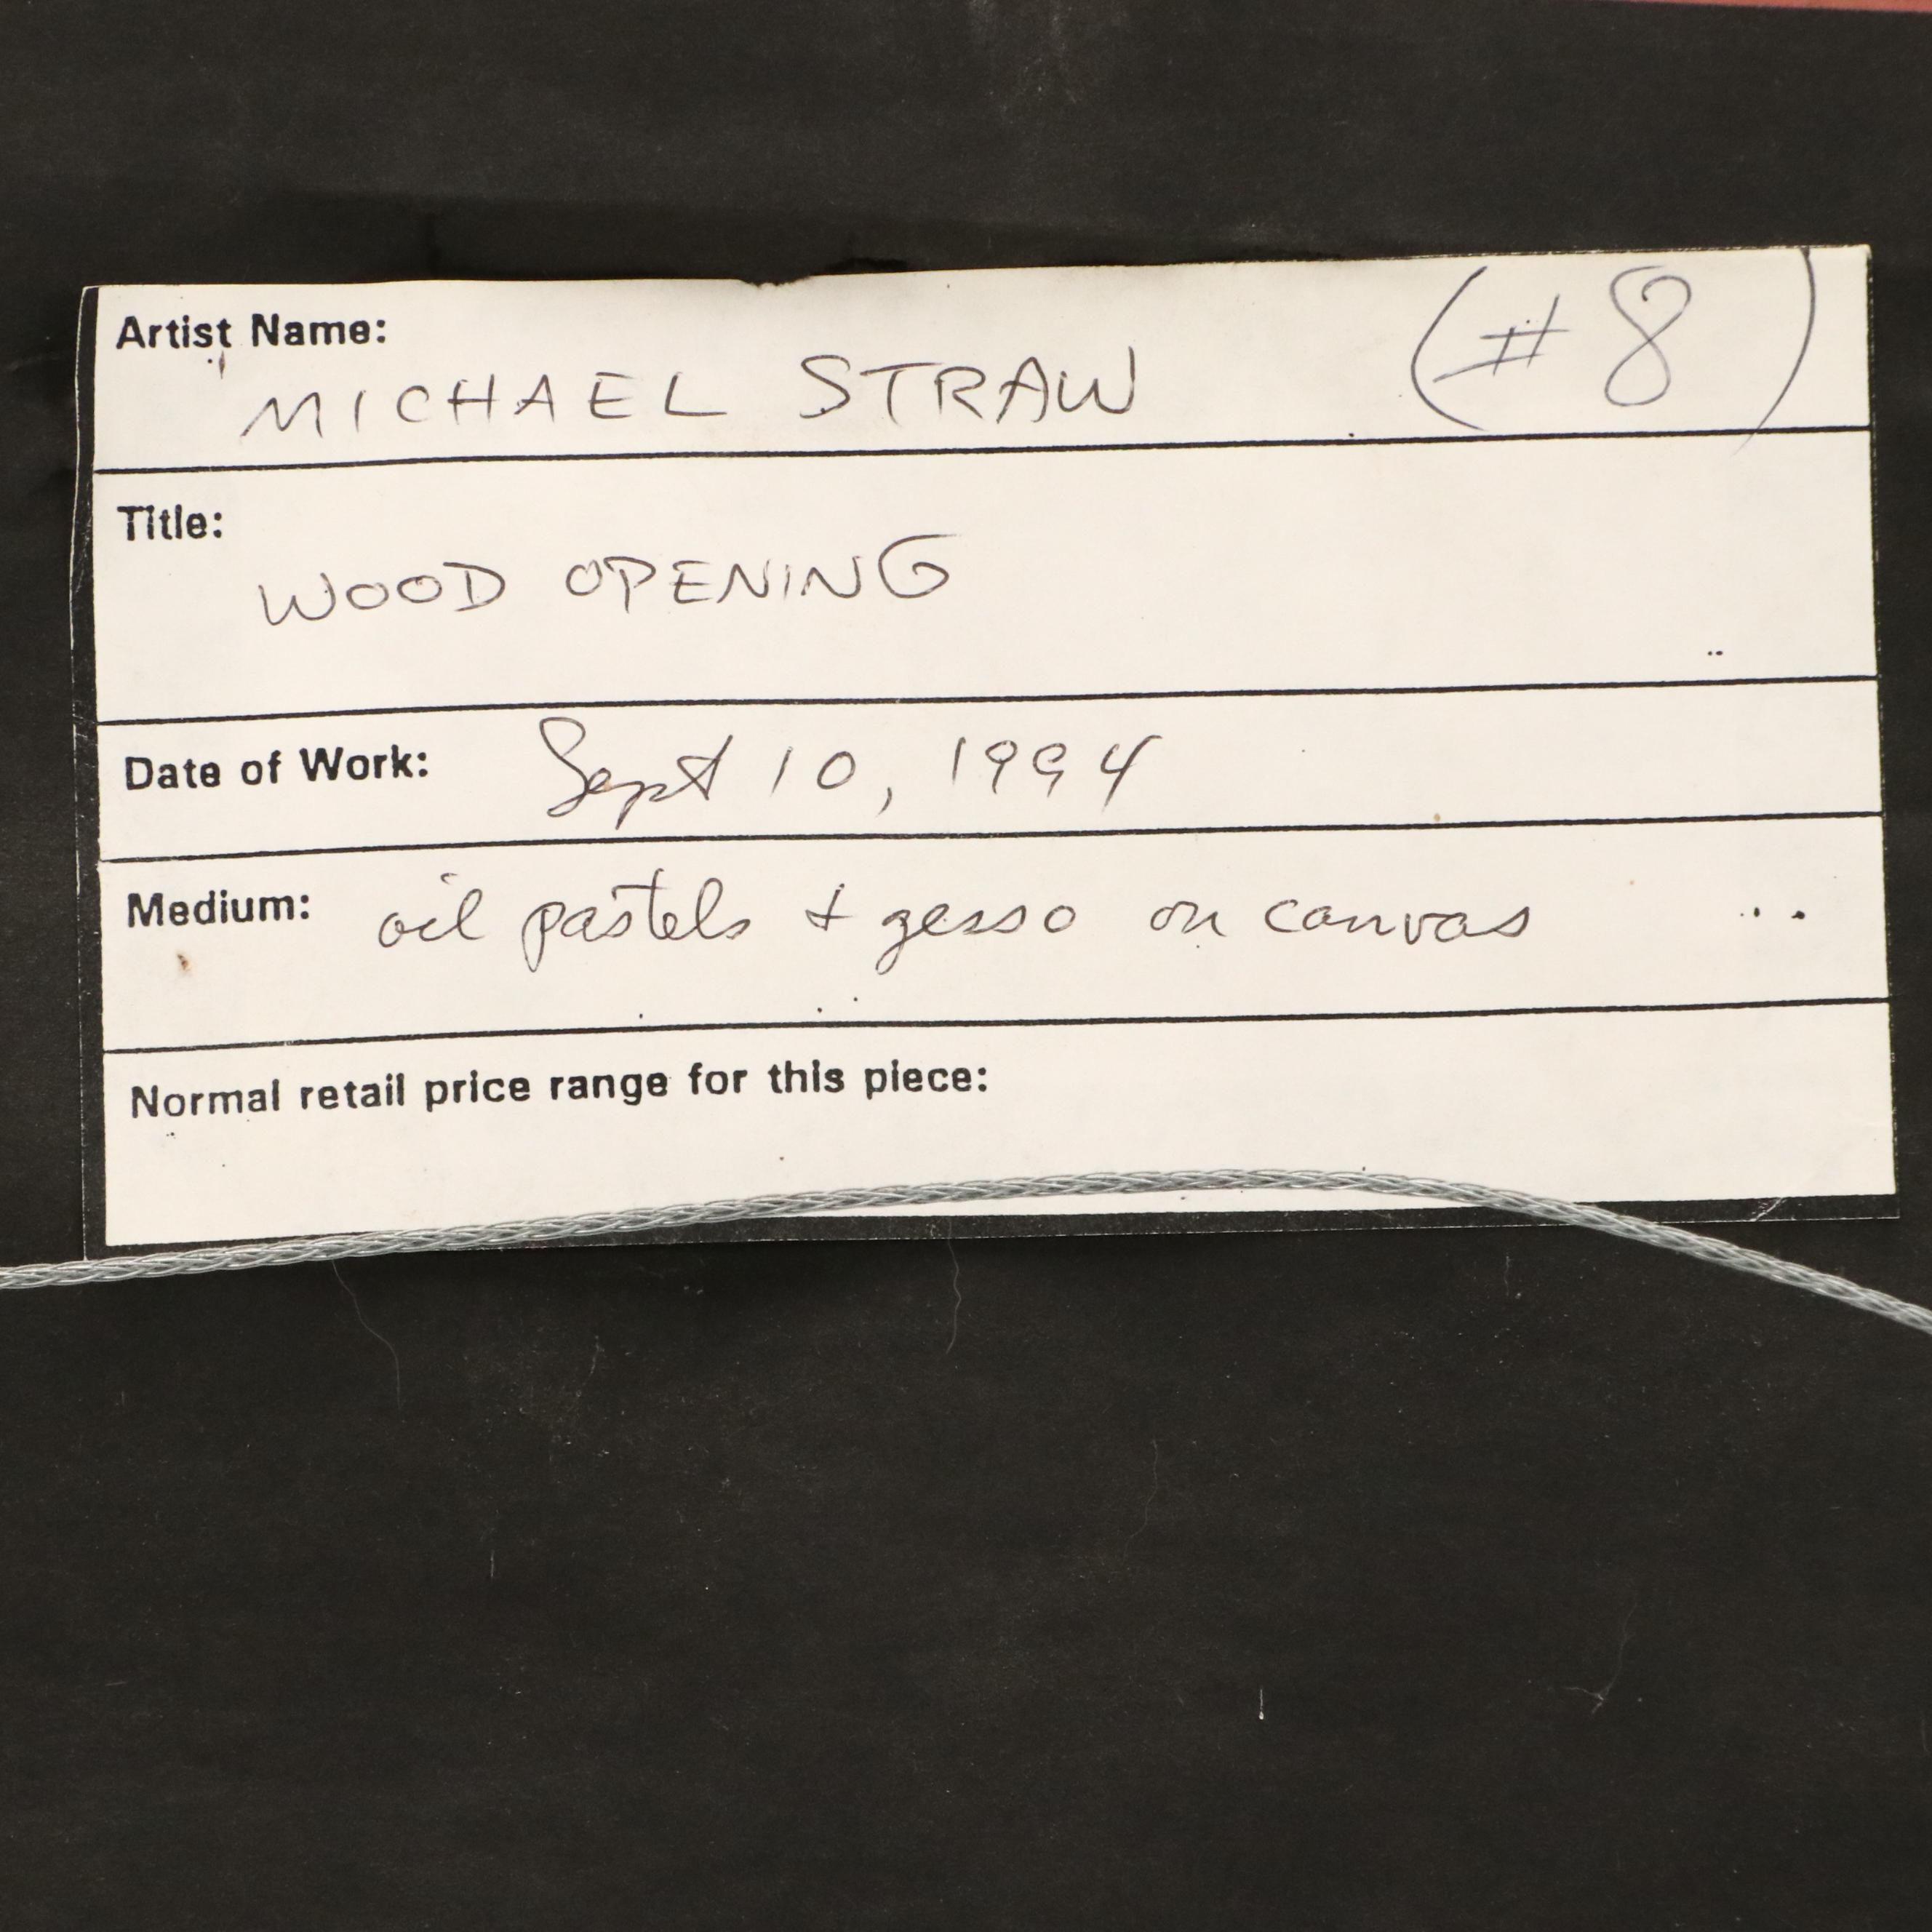 Artist Name:
MICHAEL STRAW (#8)
Title:
WOOD OPENING
Date of Work: Sept 10, 1994
Medium: oil pastels + gesso on canvas
Normal retail price range for this piece: